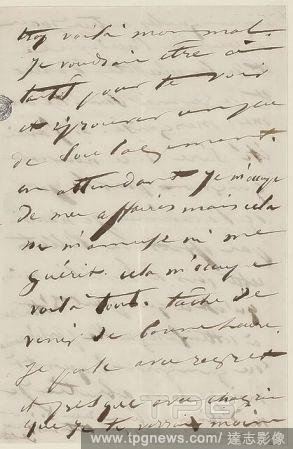 trop voilà mon mal.
je voudrais être à
tantôt pour te voir
et éprouver un peu
de soulagement.
en attendant je m'occupe
de mes affaires mais cela
ne m'amuse ni me
guérit. cela m'occupe
voilà tout. tâche de
venir de bonne heure.
je pense avec regret
et presque avec chagrin
que je te verrai moins
TPG
www.tpgnews.com / 達志影像